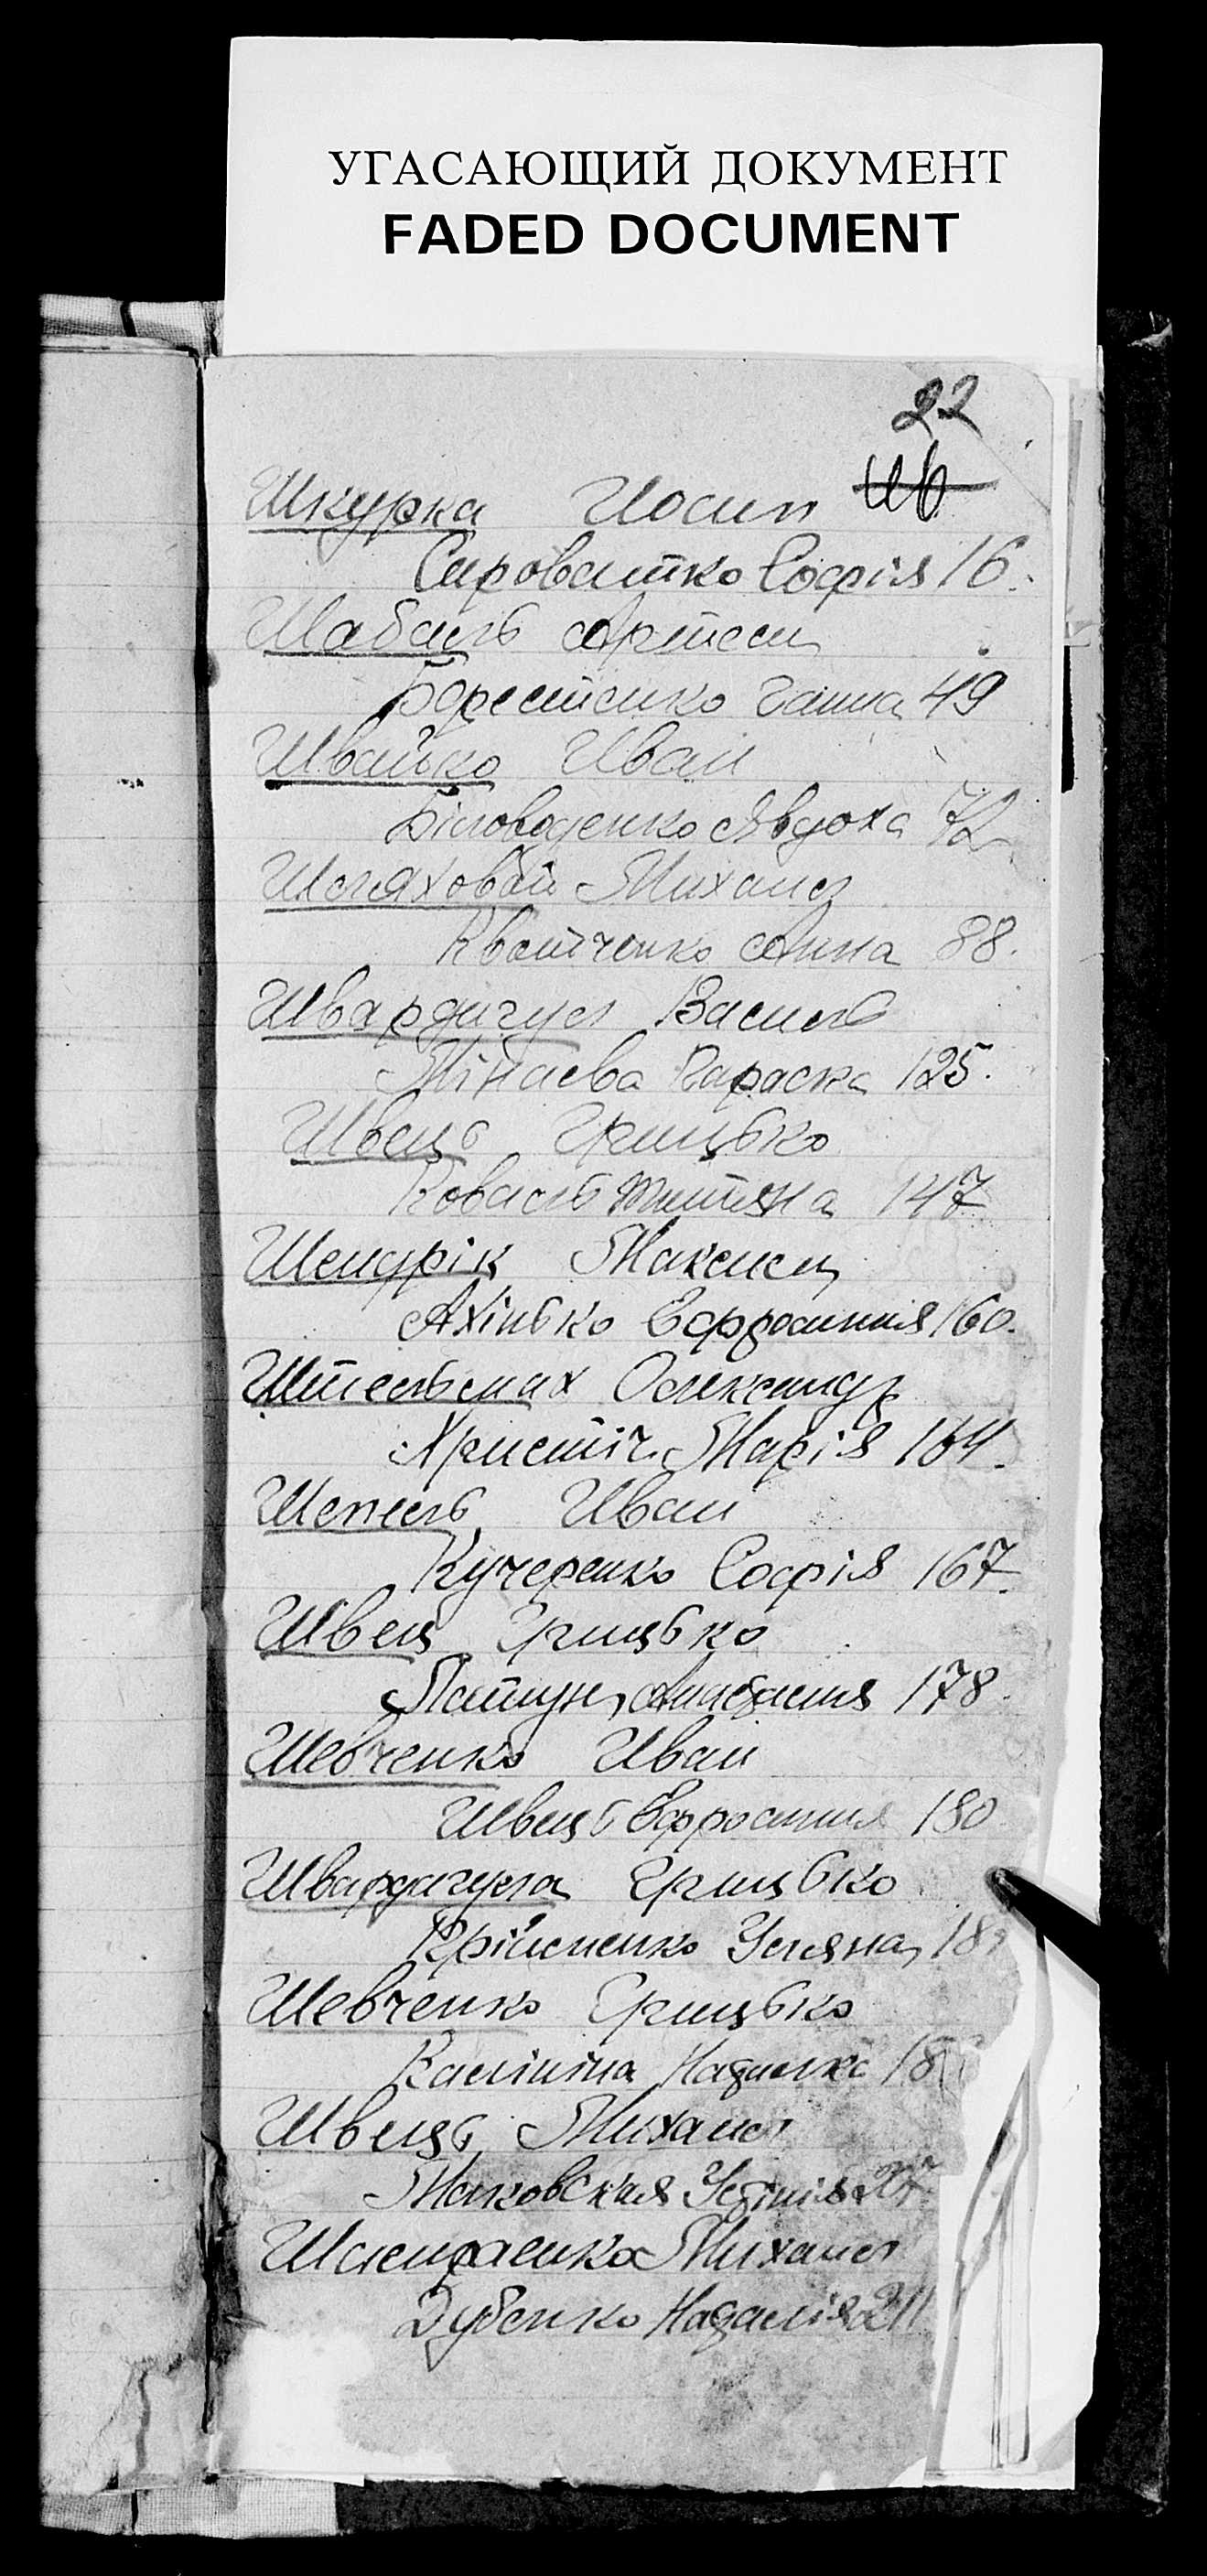 УГАСАЮЩИЙ ДОКУМЕНТ
FADED DOCUMENT
22
Шкурка Иосип Ш
Сироватко Софія 16.
Шабаль Артем
Берестенко Ганна 49
Швайко Иван
Біловоденко Явдоха 72
Шляховой Михаил
Квитченко Анна 88.
Швардигул Василь
Мінаева Параска 125.
Швець Грицько
Коваль Титяна 147
Шендрік Максим
Ахінько Ефросиния 160.
Штельмах Олександр
Христіч Марія 164.
Шепель Иван
Кучеренко Софія 167
Швец Грицько
Латун 178
Шевченко Иван
Швець Ефросиния 180
Швардагула Грицько
Уляна 18
Шевченко Грицько
Калініна 18
Швець Михаил
Маковская
Шкандраенко Михаил
Дубенко Надалія 211